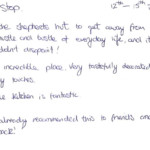 Stop 12th - 15th
the shepherds hut to get away from
hustle and bustle of everyday life, and it
didn't disappoint!
incredible place. Very tastefully decorated
touches.
kitchen is fantastic
already recommended two to friends and